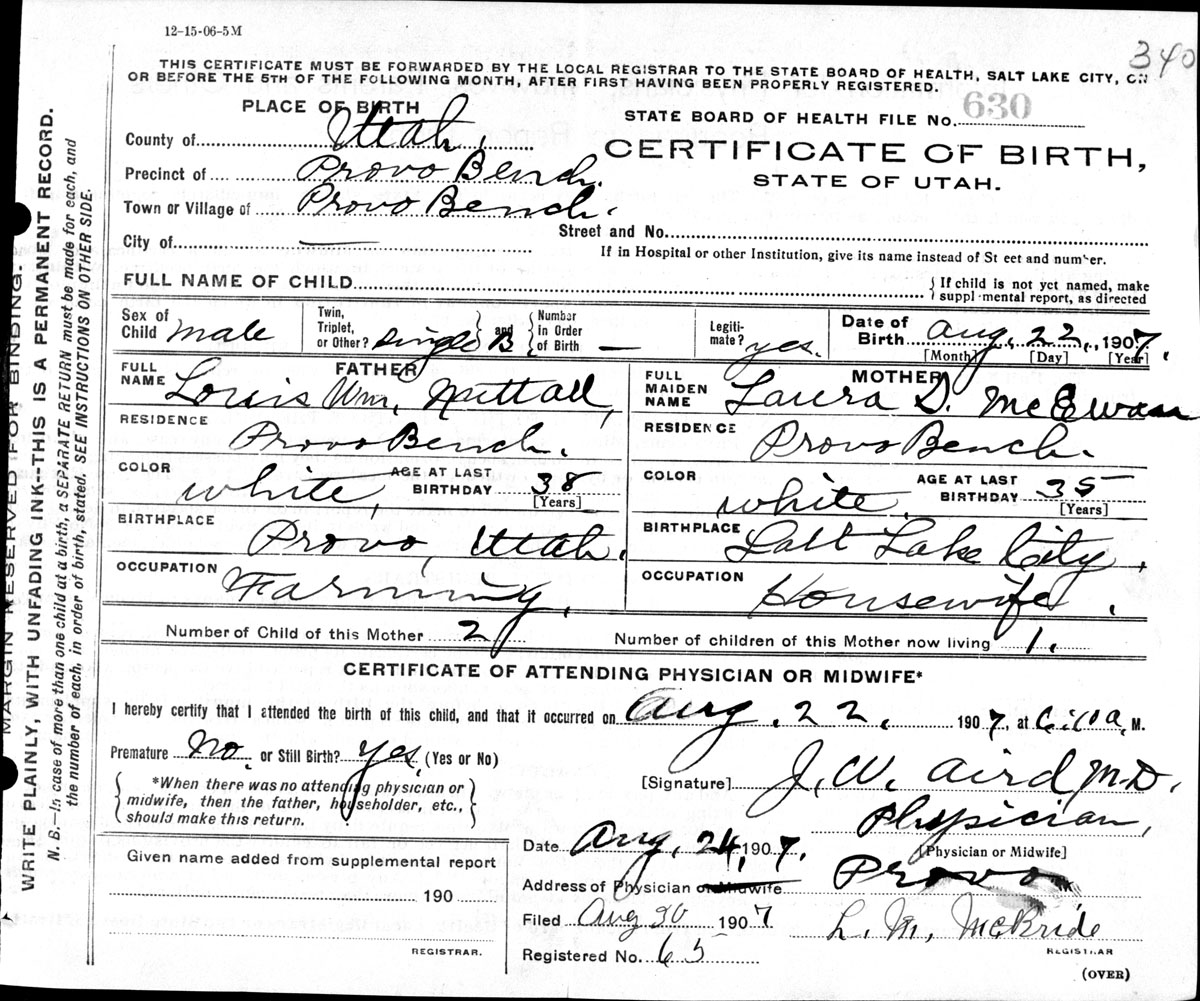 12-15-06-5M
340
THIS CERTIFICATE MUST BE FORWARDED BY THE LOCAL REGISTRAR TO THE STATE BOARD OF HEALTH, SALT LAKE CITY, ON
OR BEFORE THE 5TH OF THE FOLLOWING MONTH, AFTER FIRST HAVING BEEN PROPERLY REGISTERED.
PLACE OF BIRTH
STATE BOARD OF HEALTH FILE No. 630
County of Utah.
CERTIFICATE OF BIRTH,
STATE OF UTAH.
Precinct of Provo Bench.
Town or Village of Provo Bench.
Street and No.
City of —
If in Hospital or other Institution, give its name instead of St eet and number.
FULL NAME OF CHILD
If child is not yet named, make
suppl·mental report, as directed
Sex of Child male
Twin, Triplet, or Other? single
and
Number in Order of Birth —
Legiti-mate? yes.
Date of Birth Aug. 22, 1907.
[Month] [Day] [Year]
FATHER
FULL NAME Louis Wm. Nuttall,
RESIDENCE Provo Bench.
COLOR white,
AGE AT LAST BIRTHDAY 38
[Years]
BIRTHPLACE Provo, Utah.
OCCUPATION Farming,
MOTHER
FULL MAIDEN NAME Laura D. McEwan
RESIDENCE Provo Bench.
COLOR white,
AGE AT LAST BIRTHDAY 35
[Years]
BIRTHPLACE Salt Lake City,
OCCUPATION Housewife.
Number of Child of this Mother 2
Number of children of this Mother now living 1.
CERTIFICATE OF ATTENDING PHYSICIAN OR MIDWIFE*
I hereby certify that I attended the birth of this child, and that it occurred on Aug. 22, 1907, at M.
Premature No. or Still Birth? yes, (Yes or No)
*When there was no attending physician or
midwife, then the father, householder, etc.,
should make this return.
[Signature] J. W. Aird M.D.
Physician,
[Physician or Midwife]
Date Aug. 24, 1907.
Address of Physician or Midwife Provo,
Given name added from supplemental report
190
REGISTRAR.
Filed Aug 30 1907
L. M. McBride
REGISTRAR
Registered No. 65
(OVER)
MARGIN RESERVED FOR BINDING.
WRITE PLAINLY, WITH UNFADING INK--THIS IS A PERMANENT RECORD.
N. B.—In case of more than one child at a birth, a SEPARATE RETURN must be made for each, and
the number of each, in order of birth, stated. SEE INSTRUCTIONS ON OTHER SIDE.